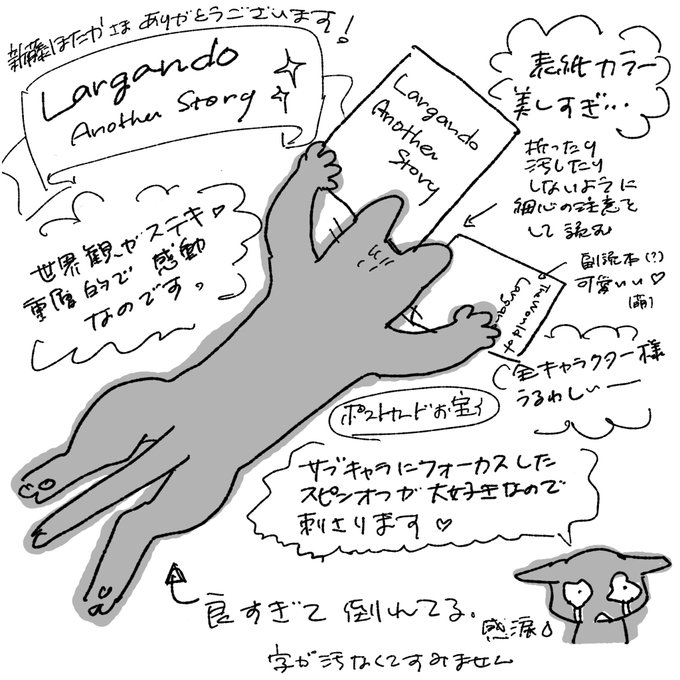 新藤ほたかさま ありがとうございます!
Largando
Another Story
Largando
Another
Story
表紙カラー
美しすぎ…
折ったり
汚したり
しないように
細心の注意を
して読む
世界観がステキ♡
重層的で 感動
なのです。
副読本(?)
可愛いい♡
(萌)
The World of
Largan
全キャラクター様
うるわしいー
ポストカードお宝
サブキャラにフォーカスした
スピンオフが大好きなので
刺さります♡
良すぎて 倒れてる。
感涙
字が汚なくてすみません